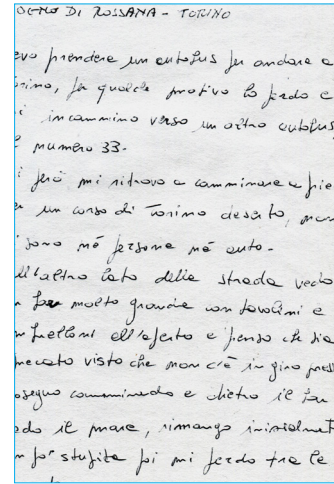 OGNO DI ROSSANA - TORINO
evo prendere un autobus per andare a
orino, per qualche motivo lo perdo e
i incammino verso un altro autobus
numero 33.
i però mi ritrovo a camminare a pie
un corso di Torino deserto, non
sono né persone né auto.
ll'altro lato della strada vedo
bar molto grande con tavolini e
mbrelloni all'aperto e penso che sia
peccato visto che non c'è in giro
oseguo camminando e dietro il bar
do il mare, rimango inizialment
n po' stupita poi mi perdo tra le